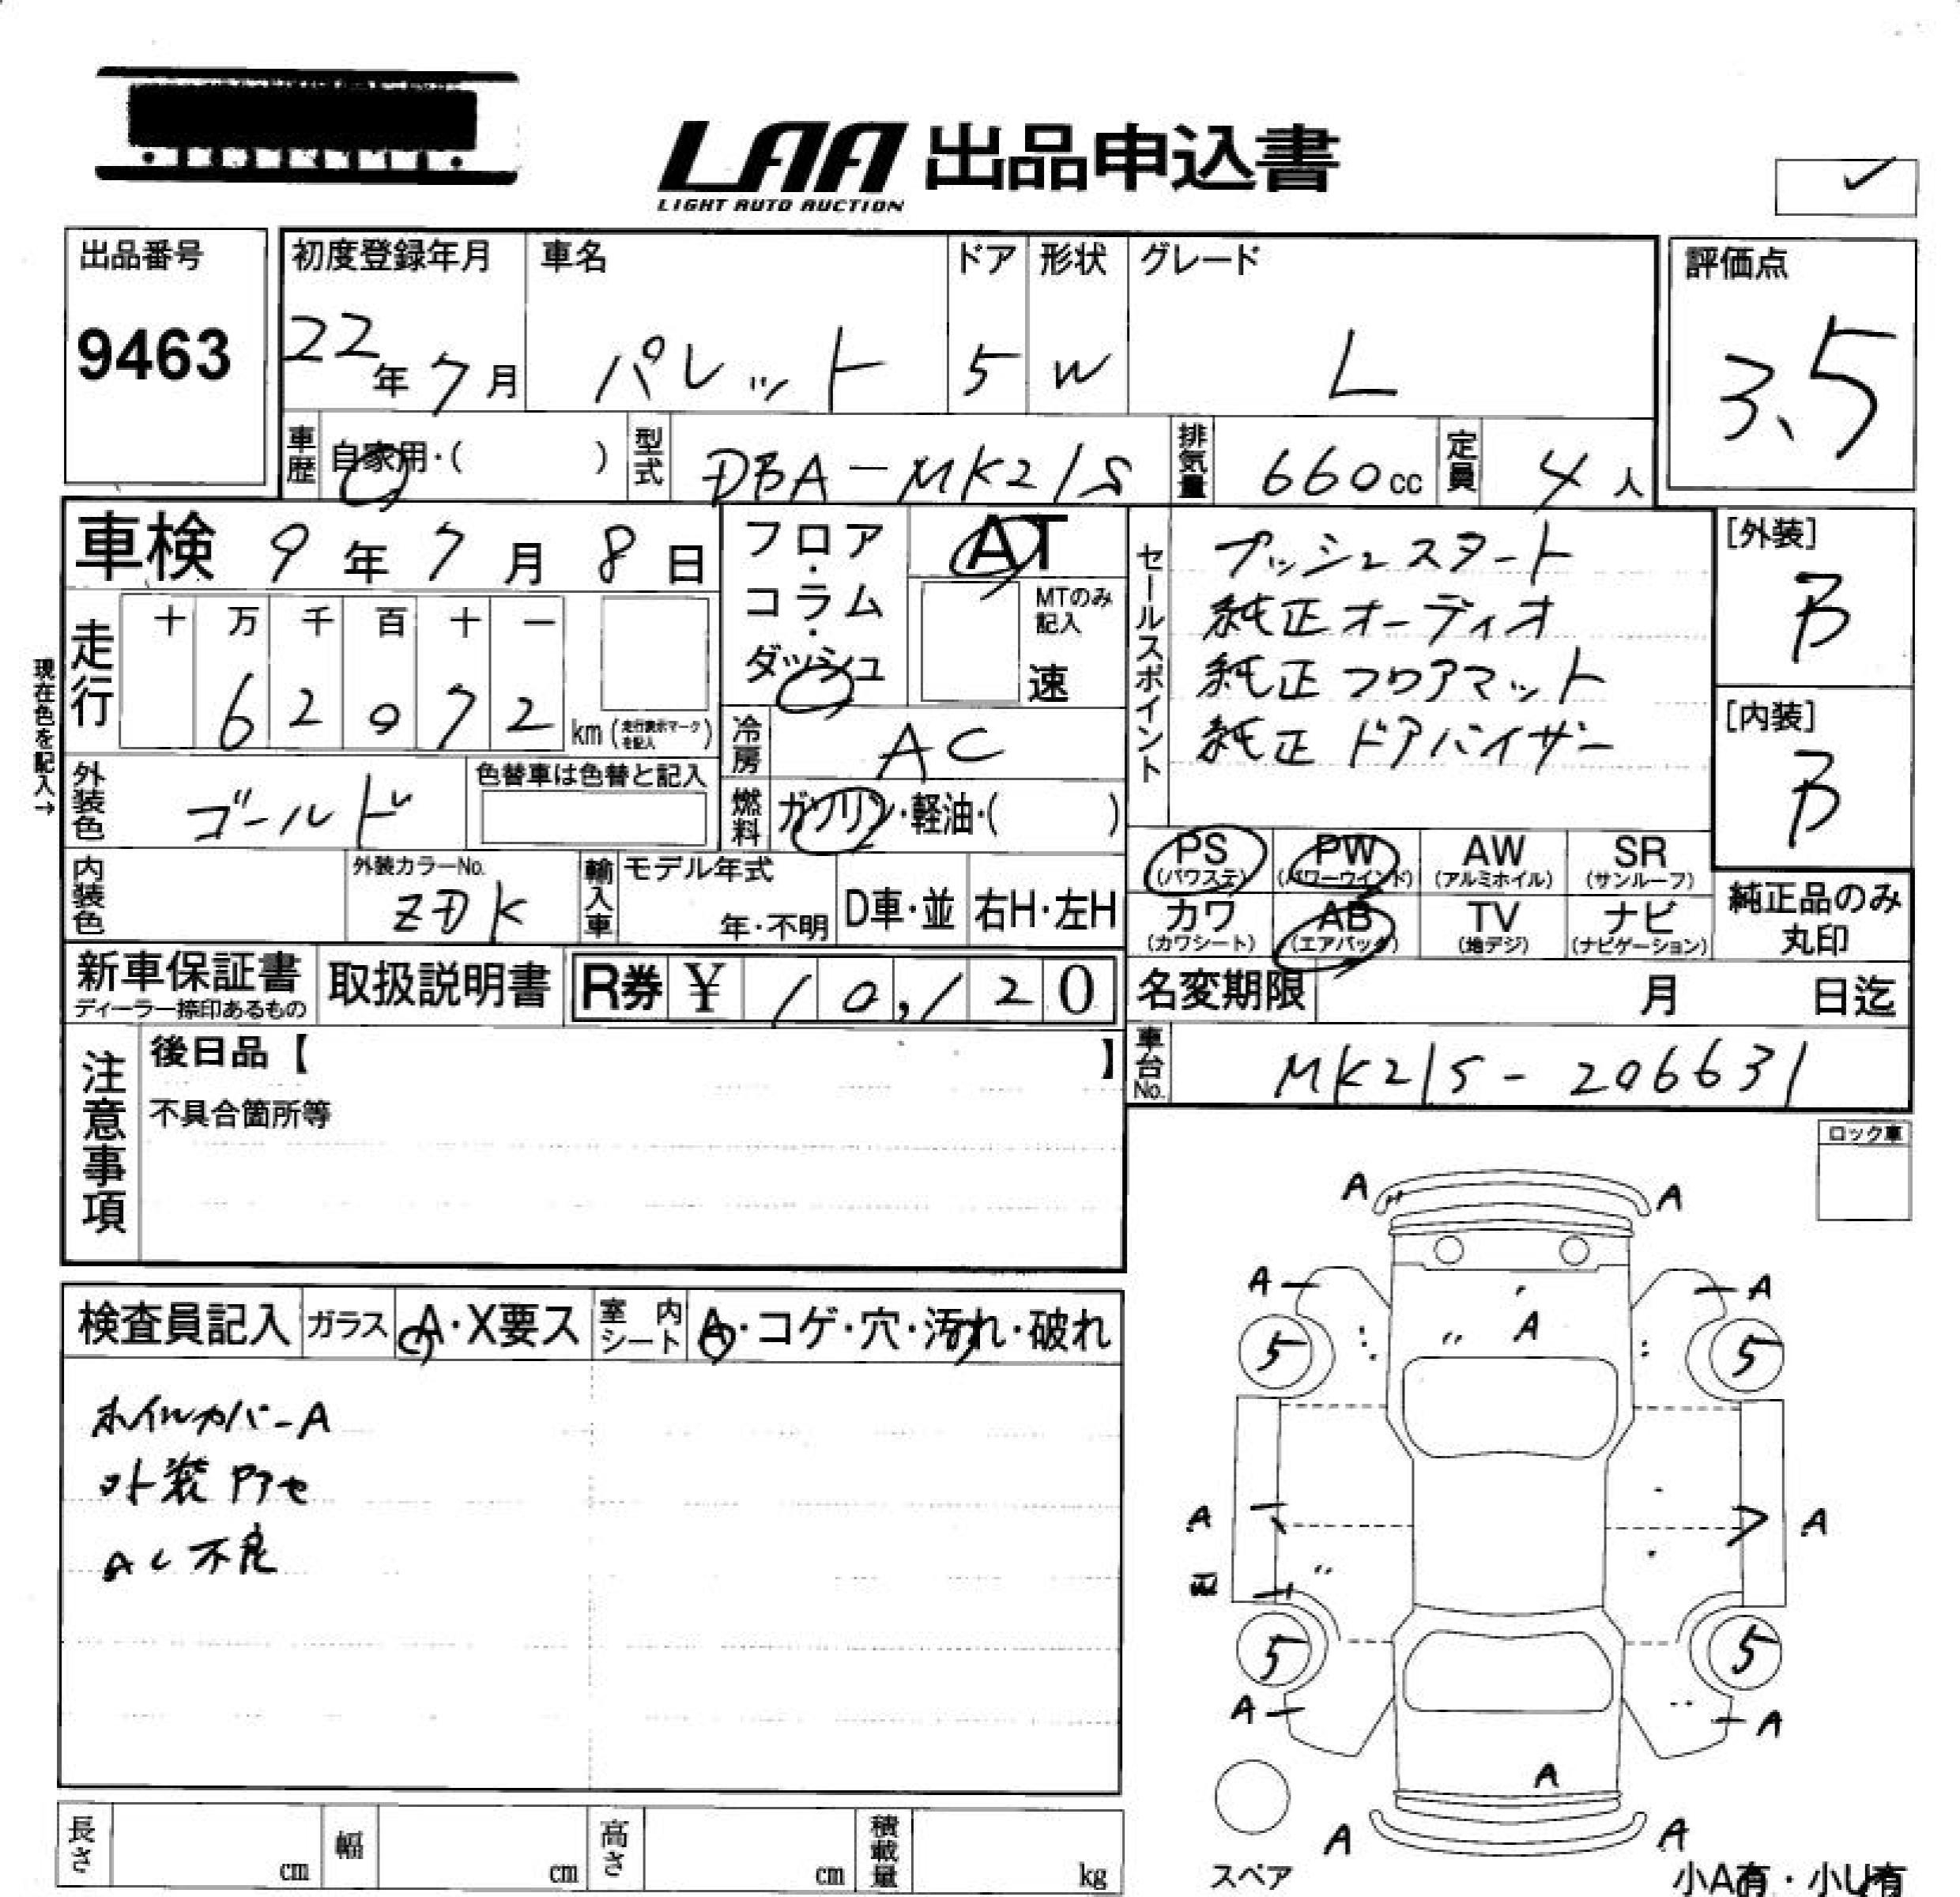 LAA 出品申込書
LIGHT AUTO AUCTION
出品番号
9463
初度登録年月
22年7月
車名
パレット
ドア
5
形状
W
グレード
L
評価点
3.5
車歴 自家用・( )
型式 DBA-MK21S
排気量 660cc
定員 4人
車検 9年7月8日
フロア・コラム・ダッシュ
AT
MTのみ記入
速
走行
十 万 千 百 十 一
6 2 0 7 2 km (走行表示マークを記入)
現在色を記入→
冷房 AC
燃料 ガソリン・軽油・( )
外装色 ゴールド
色替車は色替と記入
内装色
外装カラーNo.
ZDK
輸入車
モデル年式
年・不明
D車・並
右H・左H
セールスポイント
プッシュスタート
純正オーディオ
純正フロアマット
純正ドアバイザー
[外装]
B
[内装]
B
PS (パワステ)
PW (パワーウインド)
AW (アルミホイル)
SR (サンルーフ)
カワ (カワシート)
AB (エアバック)
TV (地デジ)
ナビ (ナビゲーション)
純正品のみ丸印
新車保証書
ディーラー捺印あるもの
取扱説明書
R券 ¥ 10,120
名変期限 月 日迄
車台No. MK21S-206631
注意事項
後日品【 】
不具合箇所等
ロック車
検査員記入
ガラス A・X要ス
室内シート A・コゲ・穴・汚れ・破れ
ホイルカバーA
外装アセ
AC不良
A A
A A
A
5 5
A A
5 5
A A
A
A A
スペア
小A有・小U有
長さ cm
幅 cm
高さ cm
積載量 kg